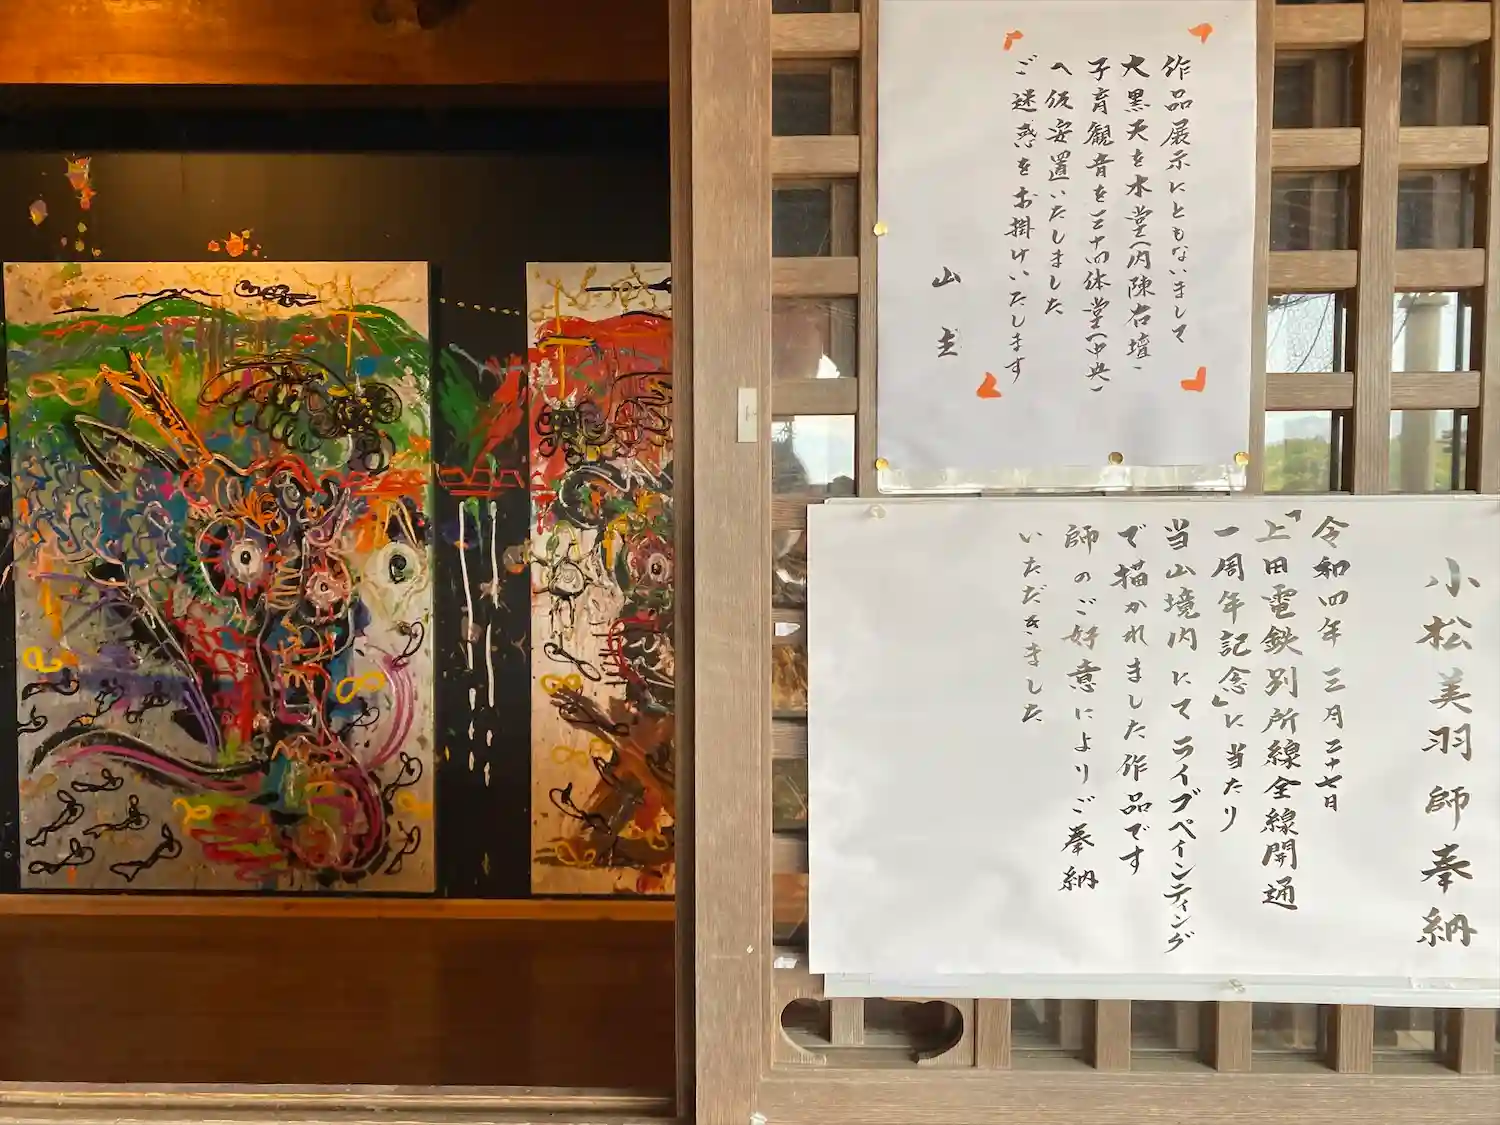 作品展示にともないまして
大黒天を本堂(内陣右壇)
子育観音を三十四体堂(中央)
へ仮安置いたしました
ご迷惑をお掛けいたします
山主
小松美羽師奉納
令和四年三月二十七日
「上田電鉄別所線全線開通
一周年記念」に当たり
当山境内にてライブペインティング
で描かれました作品です
師のご好意によりご奉納
いただきました